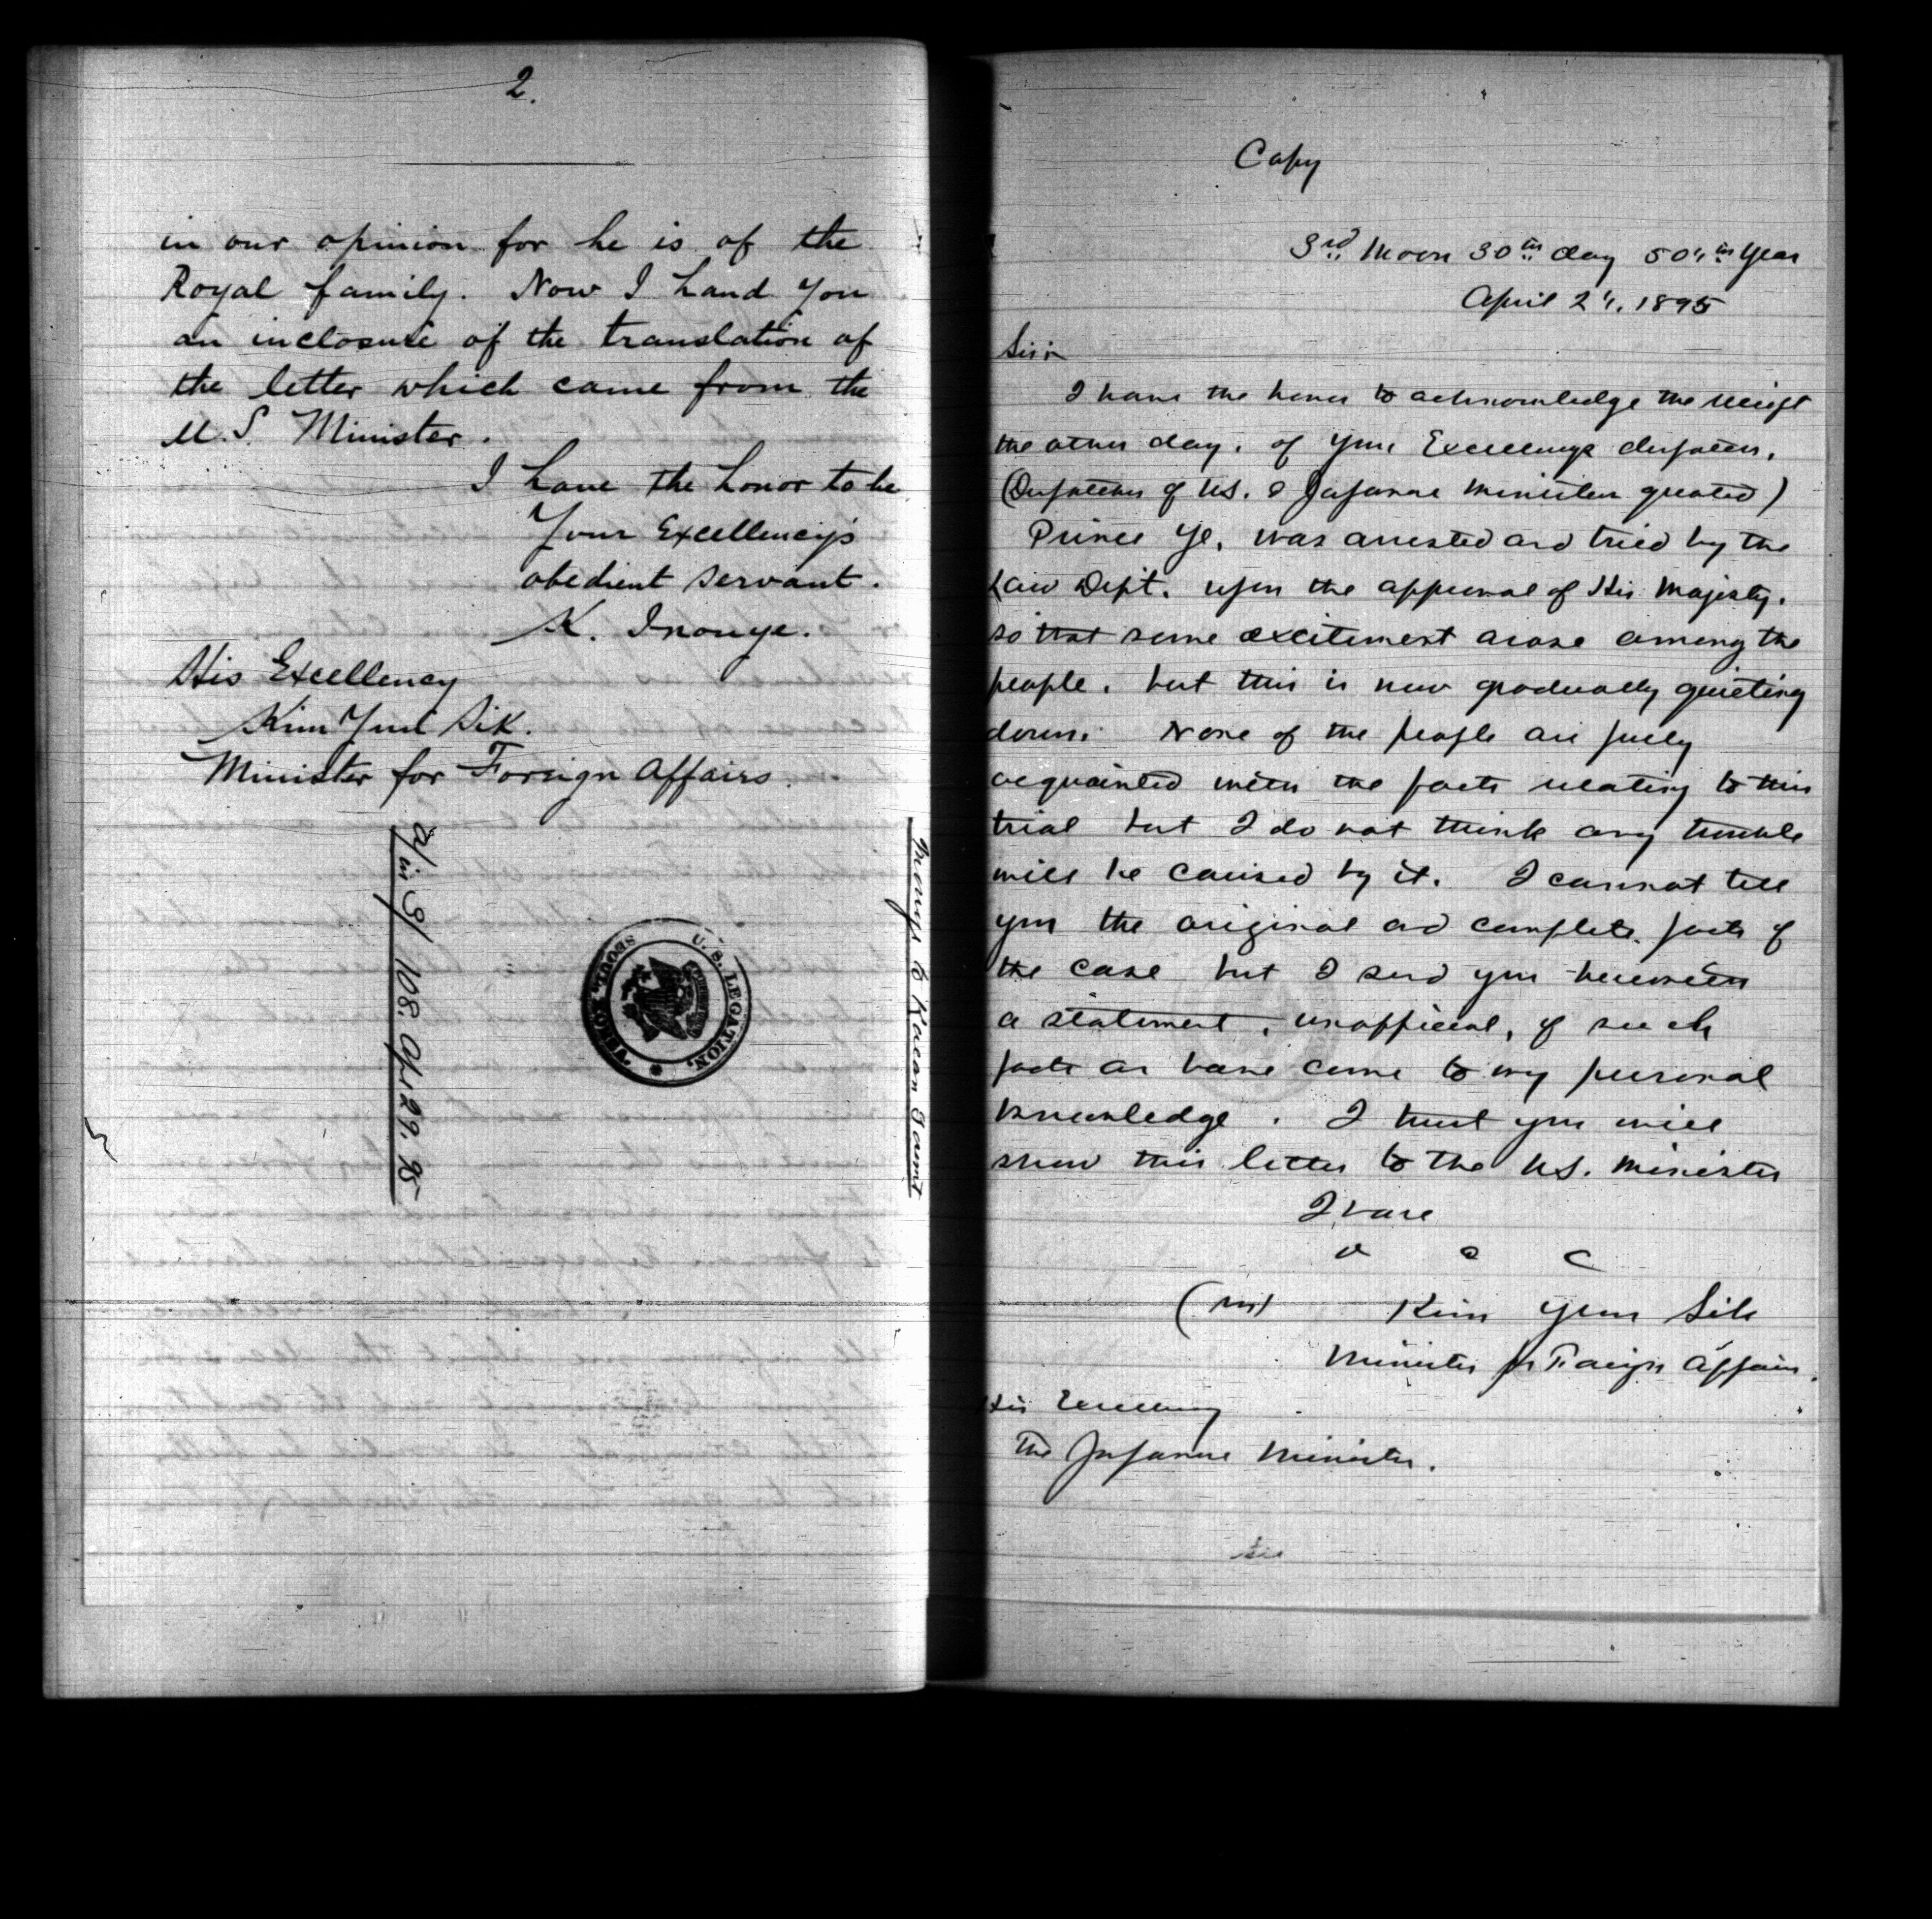 2.
in our opinion for he is of the
Royal family. Now I hand you
an inclosure of the translation of
the letter which came from the
U.S. Minister.
I have the honor to be
Your Excellency's
obedient servant.
K. Inouye.
His Excellency
Kim Yun Sik.
Minister for Foreign Affairs.
Inouye to Korean Gov'mt
108. Apr 29. 95
U. S. LEGATION,
SEOUL, KOREA
Copy
3rd Moon 30th day 504th Year
April 24, 1895
Sir:
I have the honor to acknowledge the receipt
the other day, of your Excellency's despatch,
(Despatches of U.S. & Japanese Minister quoted)
Prince Ye, was arrested and tried by the
Law Dept. upon the approval of His Majesty,
so that some excitement arose among the
people, but this is now gradually quieting
down. None of the people are fully
acquainted with the facts relating to this
trial but I do not think any trouble
will be caused by it. I cannot tell
you the original and complete facts of
the case but I send you herewith
a statement, unofficial, of such
facts as have come to my personal
knowledge. I trust you will
show this letter to the U.S. Minister
I have
Kim Yun Sik
Minister for Foreign Affairs.
His Excellency
The Japanese Minister.